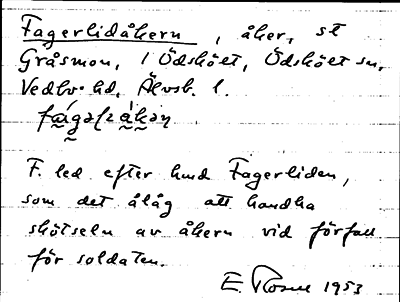 Fagerlidåkern, åker, st
Gråsmon, 1 Ödskölt, Ödskölt sn,
Vedbo hd, Älvsb. l.
F. led efter lund Fagerliden,
som det ålåg att handha
skötseln av åkern vid förfall
för soldaten.
E. Rosell 1953